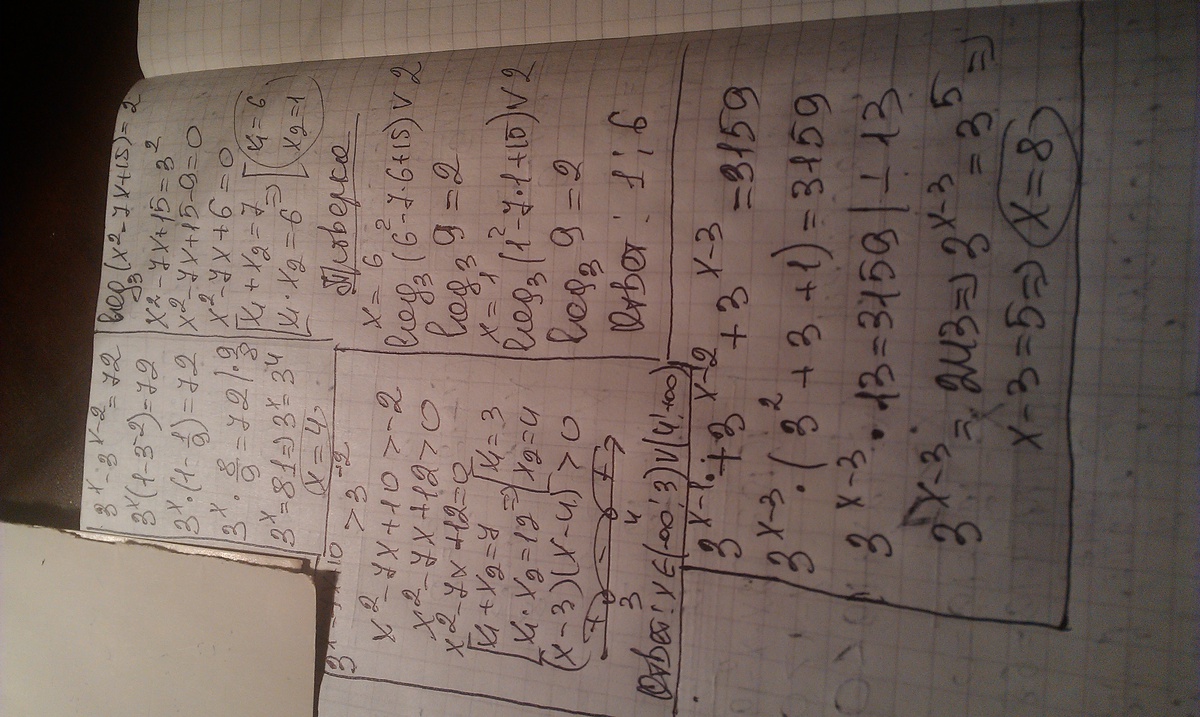 3^x - 3^(x-2) = 72
3^x (1 - 3^-2) = 72
3^x · (1 - 1/9) = 72
3^x · 8/9 = 72 | · 9/8
3^x = 81 => 3^x = 3^4
x = 4
log₃(x² - 7x + 15) = 2
x² - 7x + 15 = 3²
x² - 7x + 15 - 9 = 0
x² - 7x + 6 = 0
[x₁ + x₂ = 7
[x₁ · x₂ = 6 => [x₁ = 6
x₂ = 1
Проверка
x = 6
log₃(6² - 7·6 + 15) V 2
log₃ 9 = 2
x = 1
log₃(1² - 7·1 + 15) V 2
log₃ 9 = 2
Ответ: 1; 6
> 3^-2
x² - 7x + 10 > -2
x² - 7x + 12 > 0
x² - 7x + 12 = 0
[x₁ + x₂ = 7
[x₁ · x₂ = 12 => [x₁ = 3
x₂ = 4
(x - 3)(x - 4) > 0
+ - +
3 4
Ответ: x ∈ (-∞; 3) ∪ (4; +∞)
3^(x-1) + 3^(x-2) + 3^(x-3) = 3159
3^(x-3) · (3² + 3 + 1) = 3159
3^(x-3) · 13 = 3159 | : 13
3^(x-3) = 243 => 3^(x-3) = 3^5 =>
x - 3 = 5 => x = 8